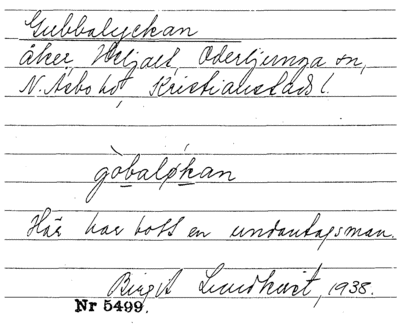 Gubbalyckan
åker, Oderljunga sn,
N. Åsbo hd, Kristianstads l.
gòbaløkan
Här har bott en undantagsman.
Birgit Lundkvist, 1938.
Nr 5499.